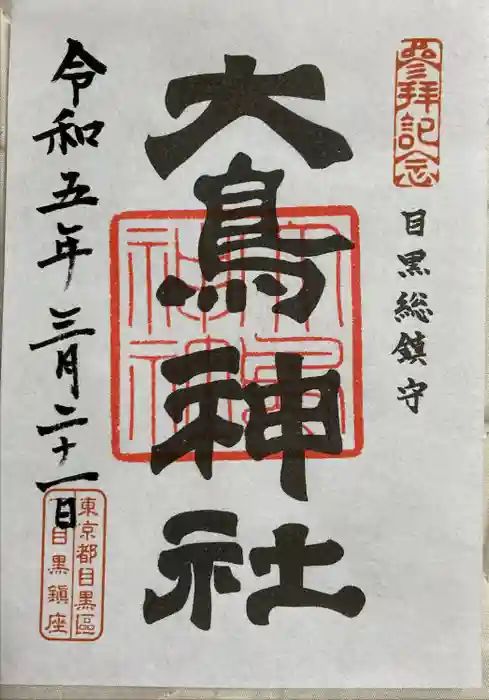 参拝記念
目黒総鎮守
大鳥神社
大鳥神社
令和五年三月二十一日
東京都目黒區
下目黒鎮座